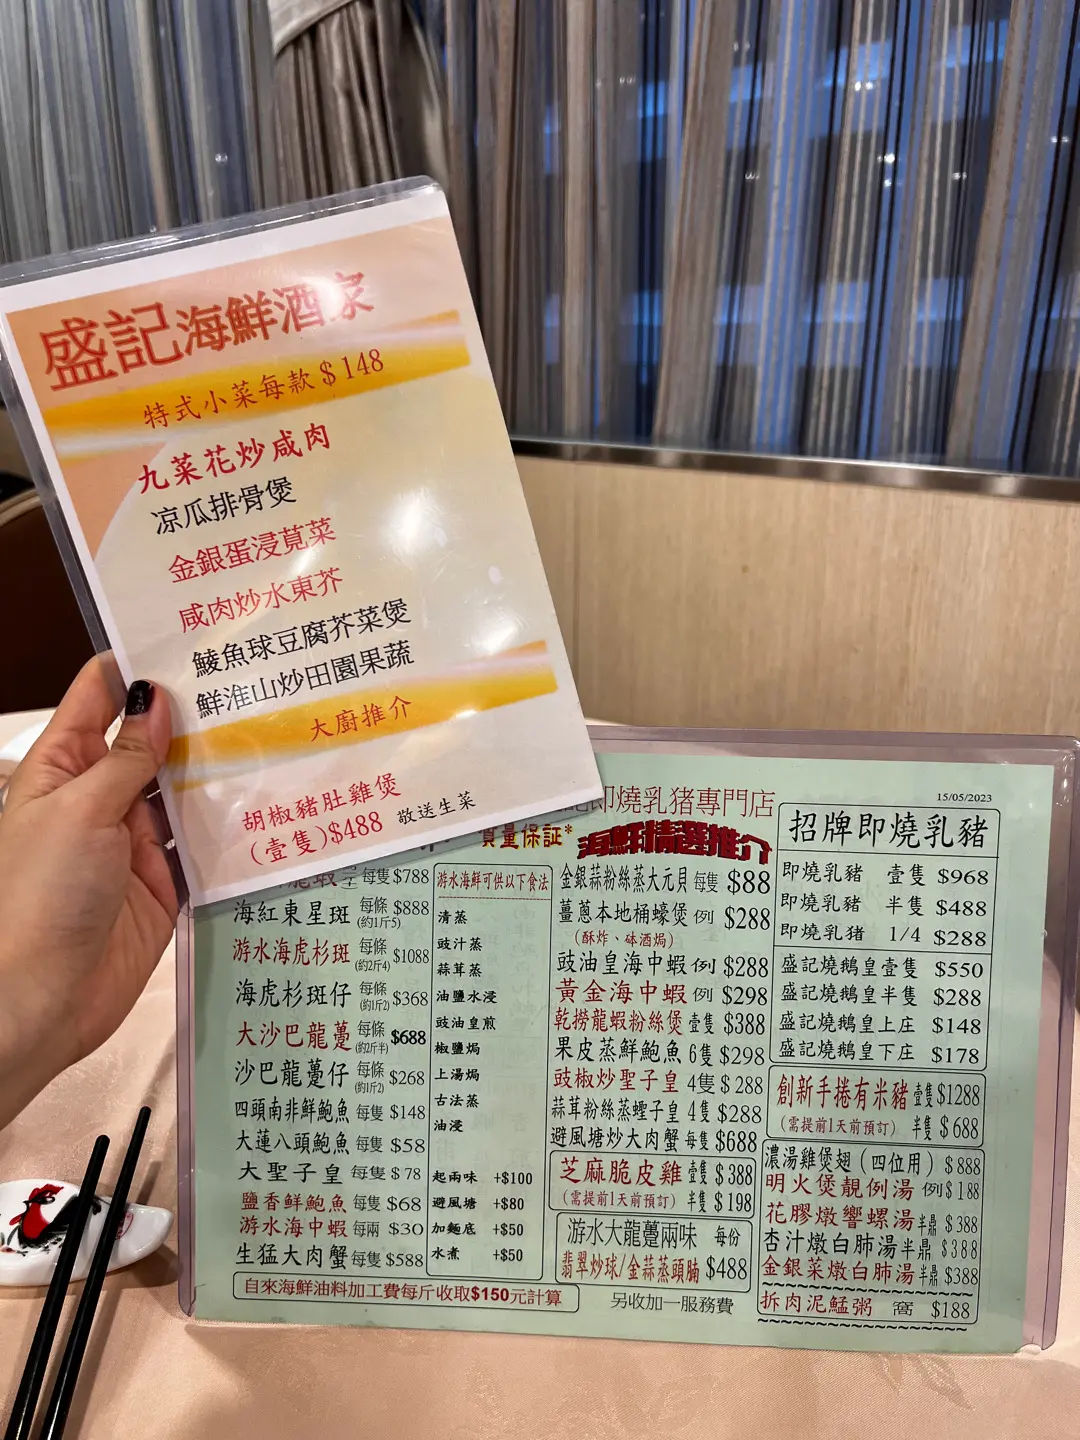 盛記海鮮酒家
特式小菜每款$148
九菜花炒咸肉
凉瓜排骨煲
金銀蛋浸莧菜
咸肉炒水東芥
鯪魚球豆腐芥菜煲
鮮淮山炒田園果蔬
大廚推介
胡椒豬肚雞煲
(壹隻)$488 敬送生菜
即燒乳猪專門店
質量保証*
海鮮精選推介
15/05/2023
每隻 $788
海紅東星斑 每條(約1斤5) $888
游水海虎杉斑 每條(約2斤4) $1088
海虎杉斑仔 每條(約1斤2) $368
大沙巴龍躉 每條(約2斤半) $688
沙巴龍躉仔 每條(約1斤2) $268
四頭南非鮮鮑魚 每隻 $148
大蓮八頭鮑魚 每隻 $58
大聖子皇 每隻 $78
鹽香鮮鮑魚 每隻 $68
游水海中蝦 每兩 $30
生猛大肉蟹 每隻 $588
自來海鮮油料加工費每斤收取$150元計算
游水海鮮可供以下食法
清蒸
豉汁蒸
蒜茸蒸
油鹽水浸
豉油皇煎
椒鹽焗
上湯焗
古法蒸
油浸
起兩味 +$100
避風塘 +$80
加麵底 +$50
水煮 +$50
金銀蒜粉絲蒸大元貝 每隻 $88
薑蔥本地桶蠔煲 例 $288
(酥炸、砵酒焗)
豉油皇海中蝦 例 $288
黃金海中蝦 例 $298
乾撈龍蝦粉絲煲 壹隻 $388
果皮蒸鮮鮑魚 6隻 $298
豉椒炒聖子皇 4隻 $288
蒜茸粉絲蒸蟶子皇 4隻 $288
避風塘炒大肉蟹 每隻 $688
芝麻脆皮雞 壹隻 $388
(需提前1天前預訂) 半隻 $198
游水大龍躉兩味 每份
翡翠炒球/金蒜蒸頭腩 $488
另收加一服務費
招牌即燒乳豬
即燒乳豬 壹隻 $968
即燒乳豬 半隻 $488
即燒乳猪 1/4 $288
盛記燒鵝皇壹隻 $550
盛記燒鵝皇半隻 $288
盛記燒鵝皇上庄 $148
盛記燒鵝皇下庄 $178
創新手捲有米豬 壹隻 $1288
(需提前1天前預訂) 半隻 $688
濃湯雞煲翅(四位用) $888
明火煲靚例湯 例 $188
花膠燉響螺湯 半鼎 $388
杏汁燉白肺湯 半鼎 $388
金銀菜燉白肺湯 半鼎 $388
拆肉泥鯭粥 窩 $188